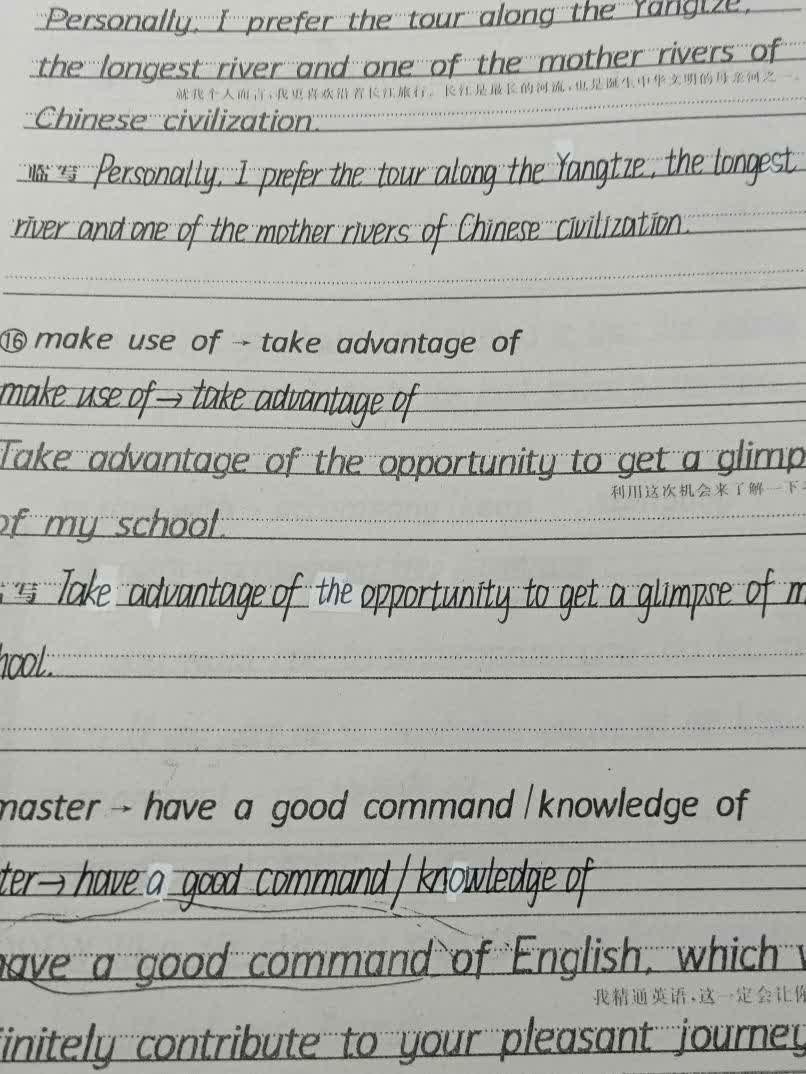 Personally, I prefer the tour along the Yangtze,
the longest river and one of the mother rivers of
就我个人而言,我更喜欢沿着长江旅行。长江是最长的河流,也是诞生中华文明的母亲河之一。
Chinese civilization.
临写 Personally, I prefer the tour along the Yangtze, the longest
river and one of the mother rivers of Chinese civilization.
⑯ make use of → take advantage of
make use of → take advantage of
Take advantage of the opportunity to get a glimp
利用这次机会来了解一下
of my school.
写 Take advantage of the opportunity to get a glimpse of m
hool.
master → have a good command / knowledge of
ter → have a good command / knowledge of
have a good command of English, which w
我精通英语,这一定会让你
finitely contribute to your pleasant journey